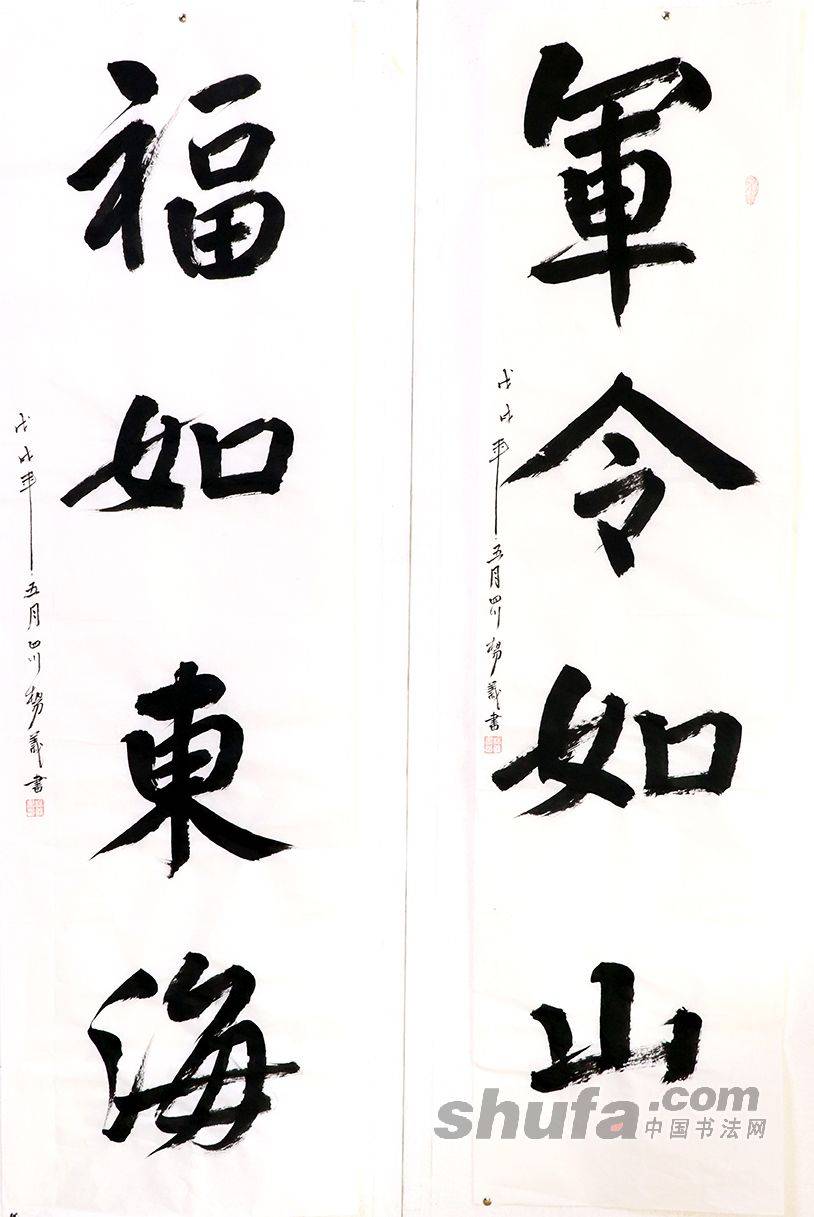 軍令如山
戊戌年五月四川楊義書
福如東海
戊戌年五月四川楊義書
shufa.com
中国书法网